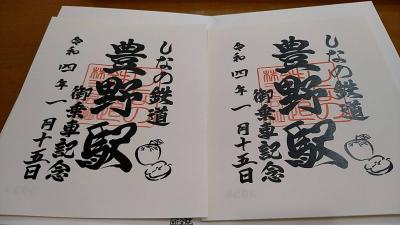 しなの鉄道
豊野駅
御乗車記念
令和四年一月十五日
しなの鉄道
豊野駅
御乗車記念
令和四年一月十五日